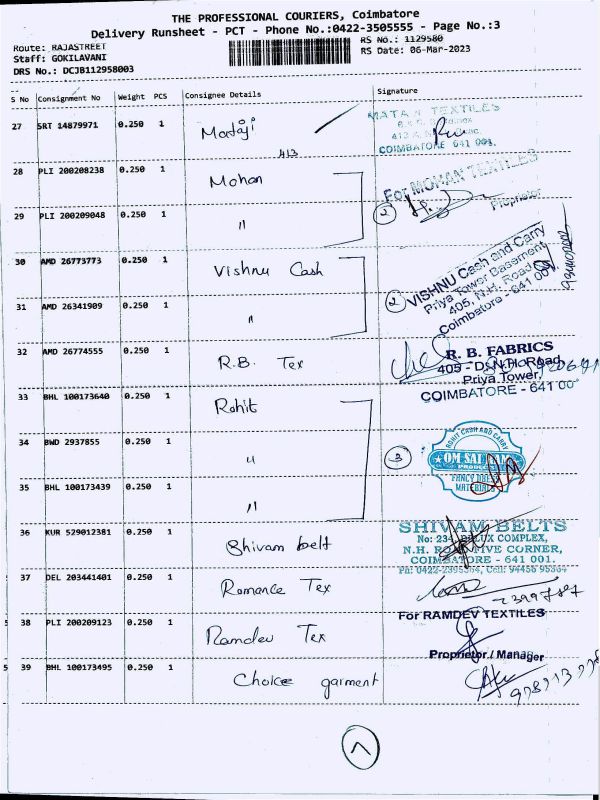 THE PROFESSIONAL COURIERS, Coimbatore
Delivery Runsheet - PCT - Phone No.:0422-3505555 - Page No.:3
Route: RAJASTREET
RS No.: 1129580
Staff: GOKILAVANI
RS Date: 06-Mar-2023
DRS No.: DCJB112958003
S No Consignment No Weight PCS Consignee Details Signature
27 SRT 14879971 0.250 1 Mataji
413
MATAJI TEXTILES
COIMBATORE 641 001.
28 PLI 200208238 0.250 1 Mohan
For MOHAN TEXTILES
29 PLI 200209048 0.250 1 "
2
Proprietor
30 AMD 26773773 0.250 1 Vishnu Cash
31 AMD 26341909 0.250 1 "
2
VISHNU Cash and Carry
Priya Tower Basement
405, N.H. Road
Coimbatore - 641 001
32 AMD 26774555 0.250 1 R.B. Tex
R. B. FABRICS
405 - D, N.H. Road,
Priya Tower,
COIMBATORE - 641 00
33 BHL 100173640 0.250 1 Rohit
34 BWD 2937855 0.250 1 "
3
ROHIT CASH AND CARRY
OM SAI RAM
PRODUCT
FANCY DRESS
MATERIALS
35 BHL 100173439 0.250 1 "
36 KUR 529012381 0.250 1 Shivam belt
SHIVAM BELTS
No: 234, DELUX COMPLEX,
N.H. CORNER,
COIMBATORE - 641 001.
Ph: 0422-2395364, Cell: 94430 95364
37 DEL 203441401 0.250 1 Romance Tex
2399787
38 PLI 200209123 0.250 1 Ramdev Tex
For RAMDEV TEXTILES
Proprietor / Manager
39 BHL 100173495 0.250 1 Choice garment